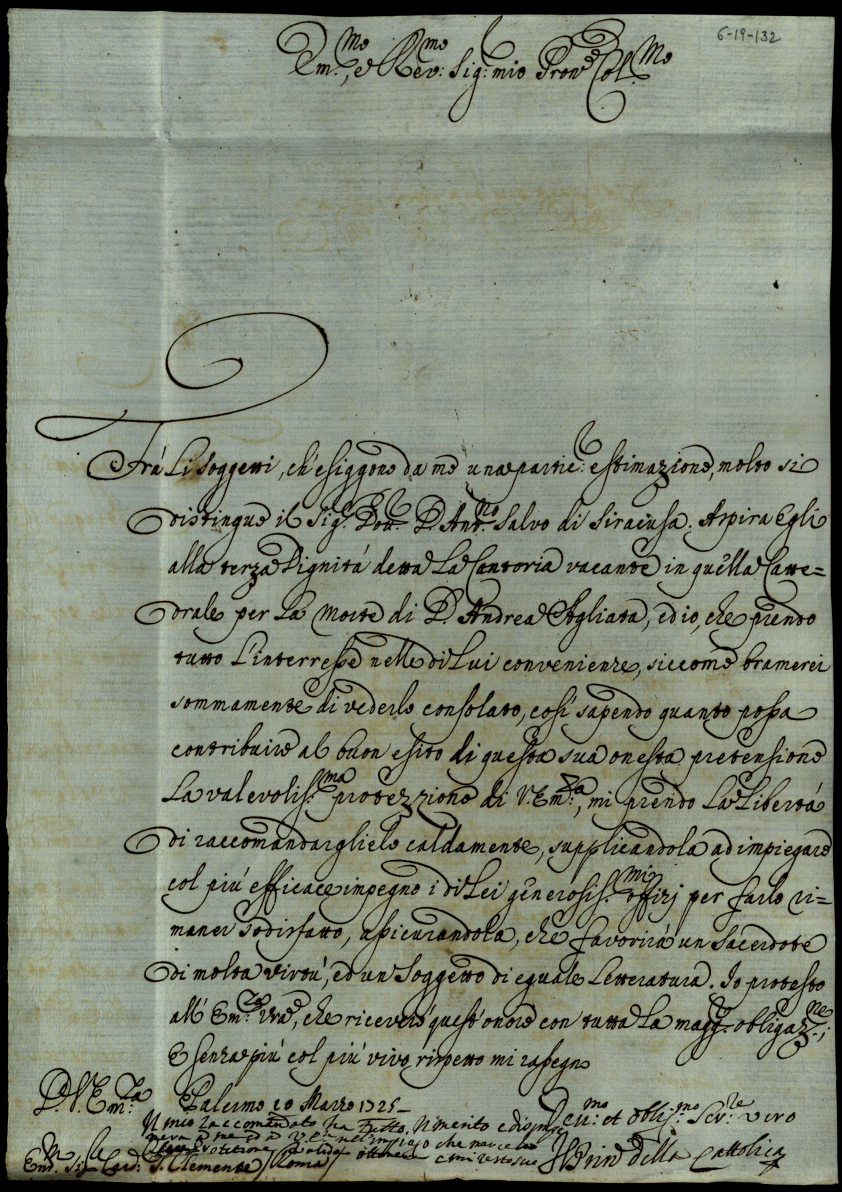 6-19-132
Em.mo, e Rev:mo Sig: mio Pron.e Col.mo
Frà Li Soggetti, ch'esiggono da me una partic: estimazione, molto si
distingue il Sig.r Dott.r D. Ant.no Salvo di Siracusa. Aspira Egli
alla terza Dignità detta La Cantoria vacante in quella Catte=
drale per La Morte di D. Andrea Agliata, ed io, che prendo
tutto L'interresse nelle di Lui convenienze, siccome bramerei
sommamente di vederlo consolato, così sapendo quanto possa
contribuire al buon esito di questa sua onesta pretensione
La valevolis.ma protezzione di V. Em.za, mi prendo La Libertà
di raccomandarglielo caldamente, supplicandola ad impiegare
col più efficace impegno i di Lei generosis.mi offizj per farlo ri=
maner sodisfatto, assicurandola, che favorirà un Sacerdote
di molta virtù, ed un Soggetto di eguale Letteratura. Io protesto
all' Em.za Vra, che riceverò quest'onore con tutta La magg.r obligaz.ne;
E senza più col più vivo rispetto mi rassegno
D. V. Em.za
Palermo 10 Marzo 1725
Il mio raccomandato ha tutto il merito
che
e mi resto suo
Dev.mo et oblig.mo Ser.re vero
Il Prin.e della Cattolica
Em.mo Sig.r Card. S. Clemente / Roma /